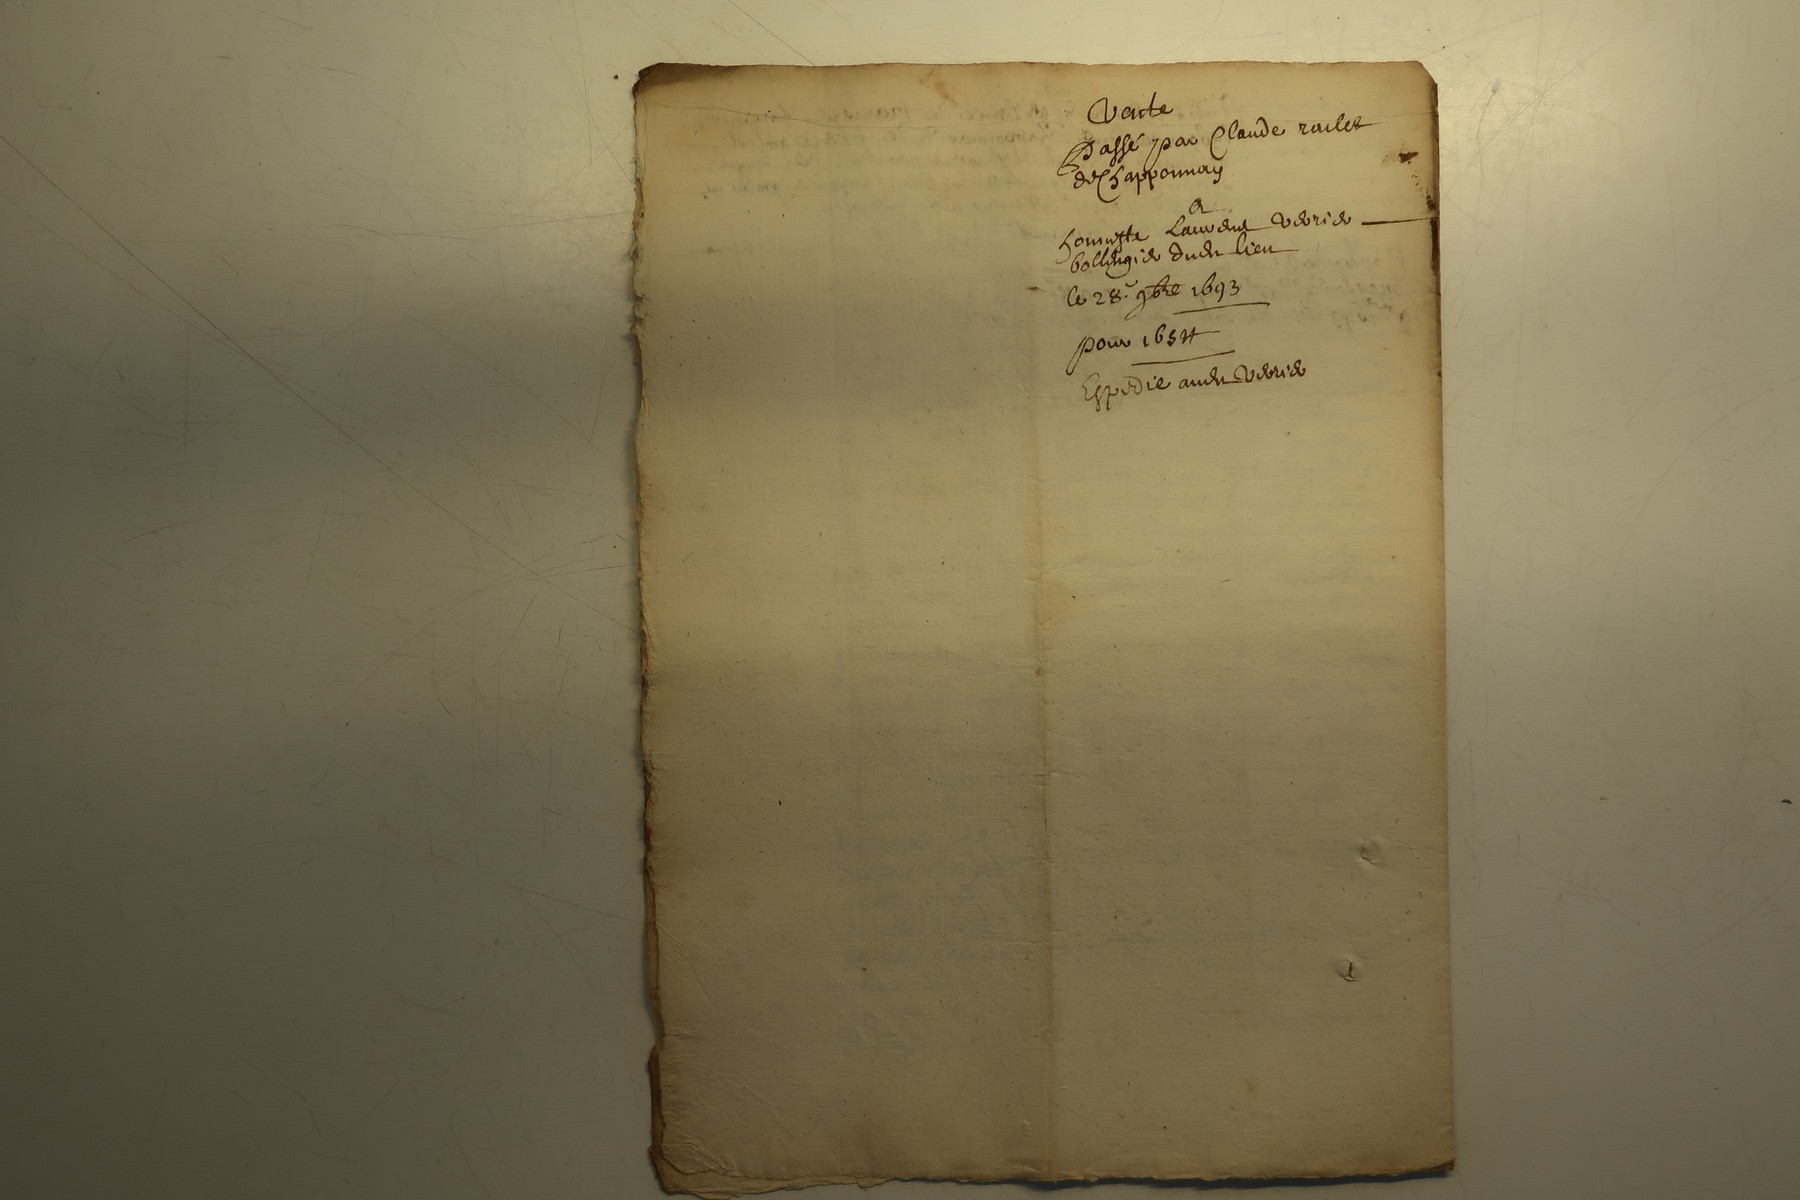 Vente
Passé par Claude raclet
de Chapponnay
a
honneste Laurent Verrier
bollengier dudt lieu
le 28e 9bre 1693
pour 165 lt
Expedie audt Verrier